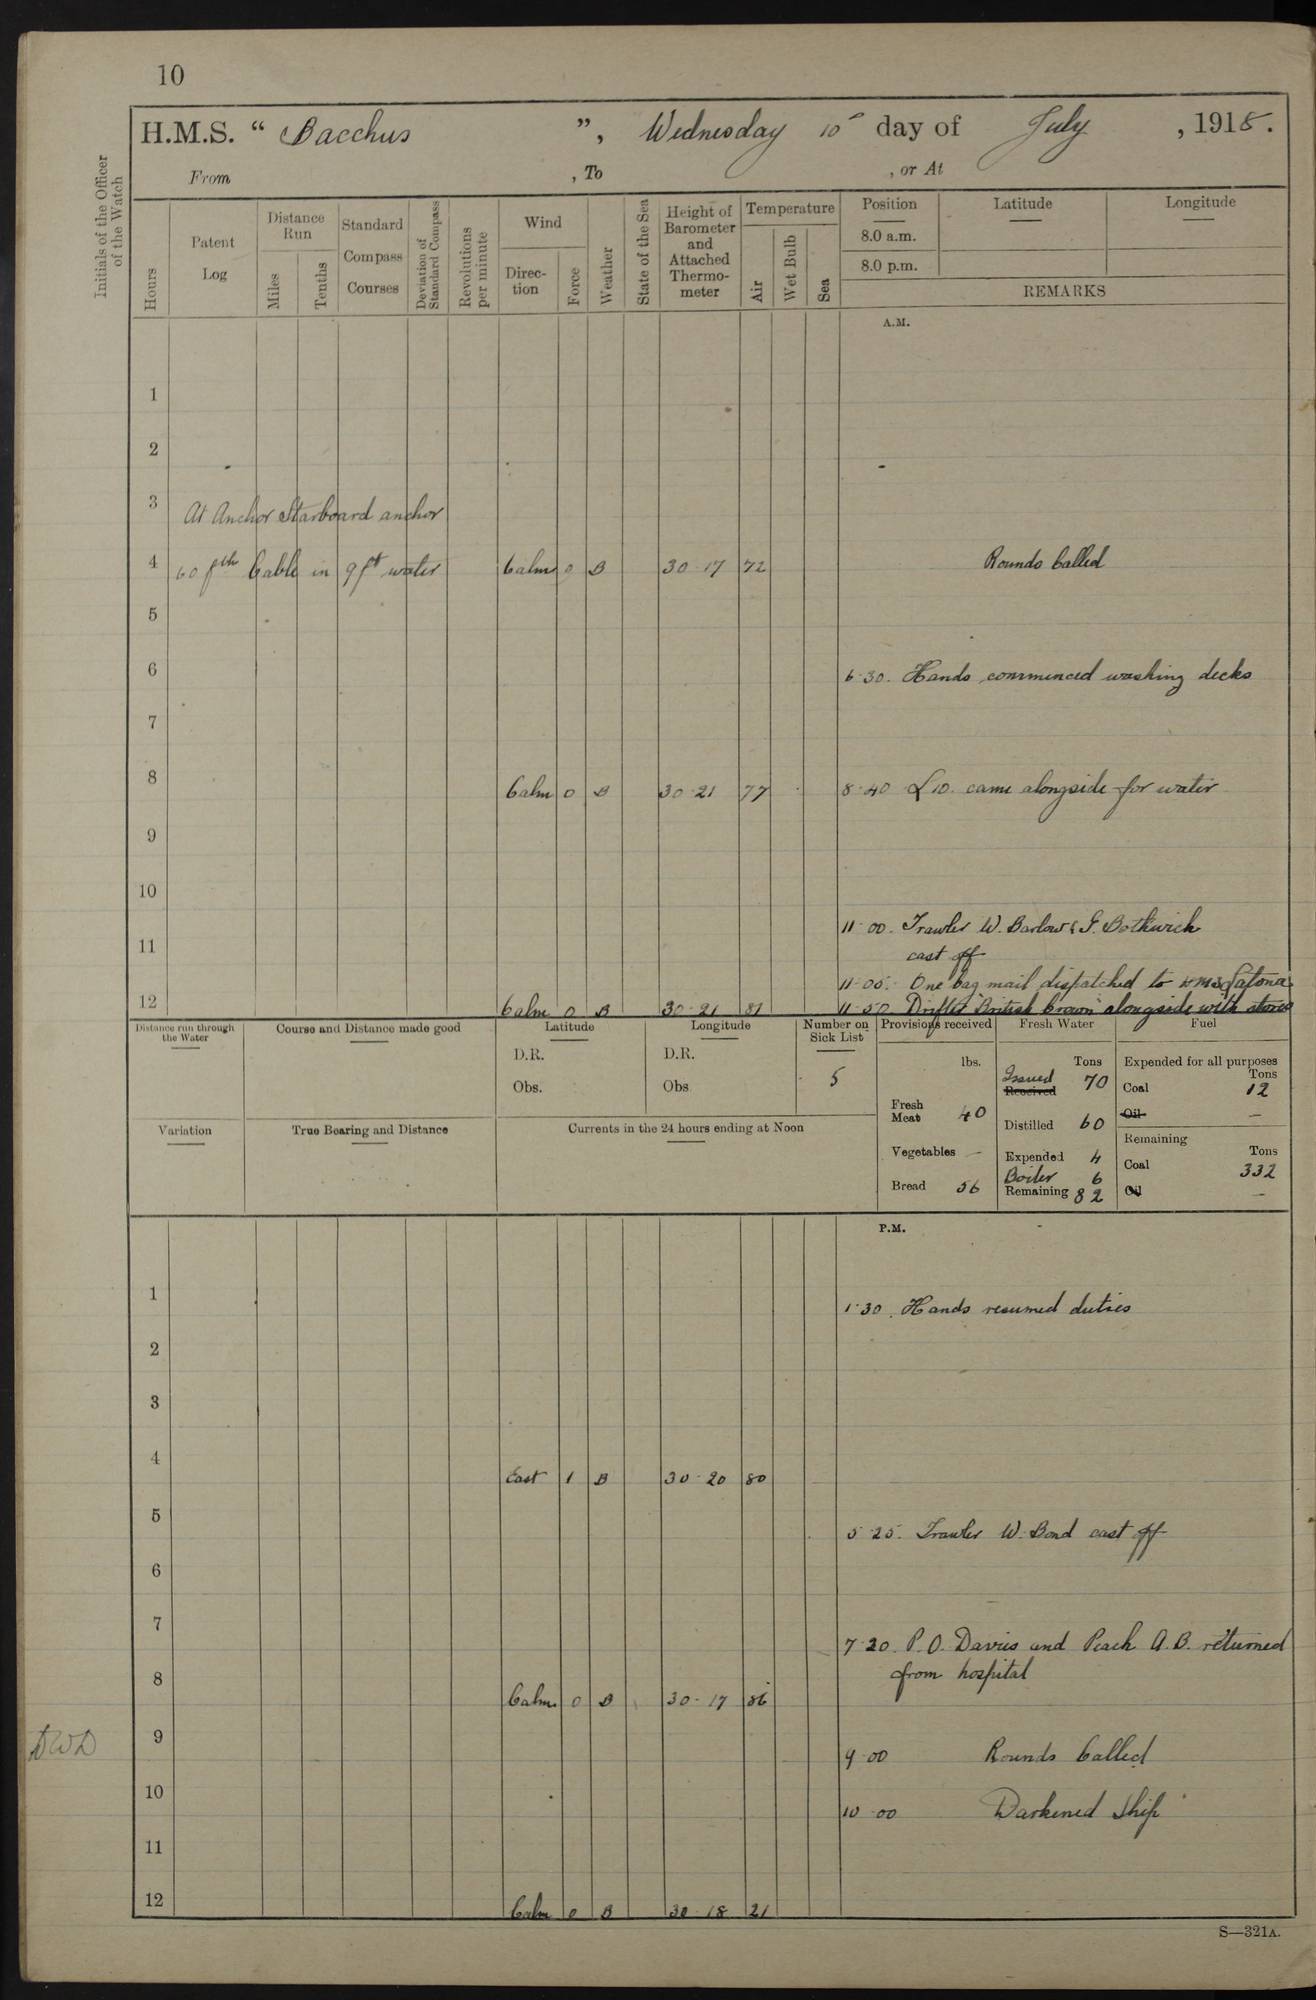 10
H.M.S. “ Bacchus ”, Wednesday 10th day of July , 1918.
From , To , or At
Initials of the Officer of the Watch
Hours
Patent Log
Distance Run
Miles
Tenths
Standard Compass Courses
Deviation of Standard Compass
Revolutions per minute
Wind
Direc-tion
Force
Weather
State of the Sea
Height of Barometer and Attached Thermo-meter
Temperature
Air
Wet Bulb
Sea
Position Latitude Longitude
8.0 a.m.
8.0 p.m.
REMARKS
A.M.
1
2
3 At Anchor Starboard anchor
4 60 fth Cable in 9 ft water Calm 0 B 30·17 72 Rounds Called
5
6 6·30. Hands commenced washing decks
7
8 Calm 0 B 30·21 77 8·40 L 10. came alongside for water
9
10
11·00. Trawler W. Barlow & G. Bothwick
11 cast off
11·05. One bag mail dispatched to HMS Latona
12 Calm 0 B 30·21 81 11·50 Drifter "British Crown" alongside with stores
Distance run through the Water
Course and Distance made good
Latitude
D.R.
Obs.
Longitude
D.R.
Obs
Number on Sick List
5
Provisions received
lbs.
Fresh Meat 40
Vegetables —
Bread 56
Fresh Water
Tons
Issued 70
Received
Distilled 60
Expended 4
Boiler 6
Remaining 82
Fuel
Expended for all purposes
Tons
Coal 12
Oil —
Remaining
Tons
Coal 332
Oil —
Variation
True Bearing and Distance
Currents in the 24 hours ending at Noon
P.M.
1 1·30. Hands resumed duties
2
3
4 East 1 B 30·20 80
5 5·25. Trawler W. Bond cast off
6
7 7·20. P.O. Davies and Peach A.B. returned
8 from hospital
Calm 0 B 30·17 86
DWD 9 9·00 Rounds Called
10 10·00 Darkened Ship
11
12 Calm 0 B 30·18 21
S—321A.